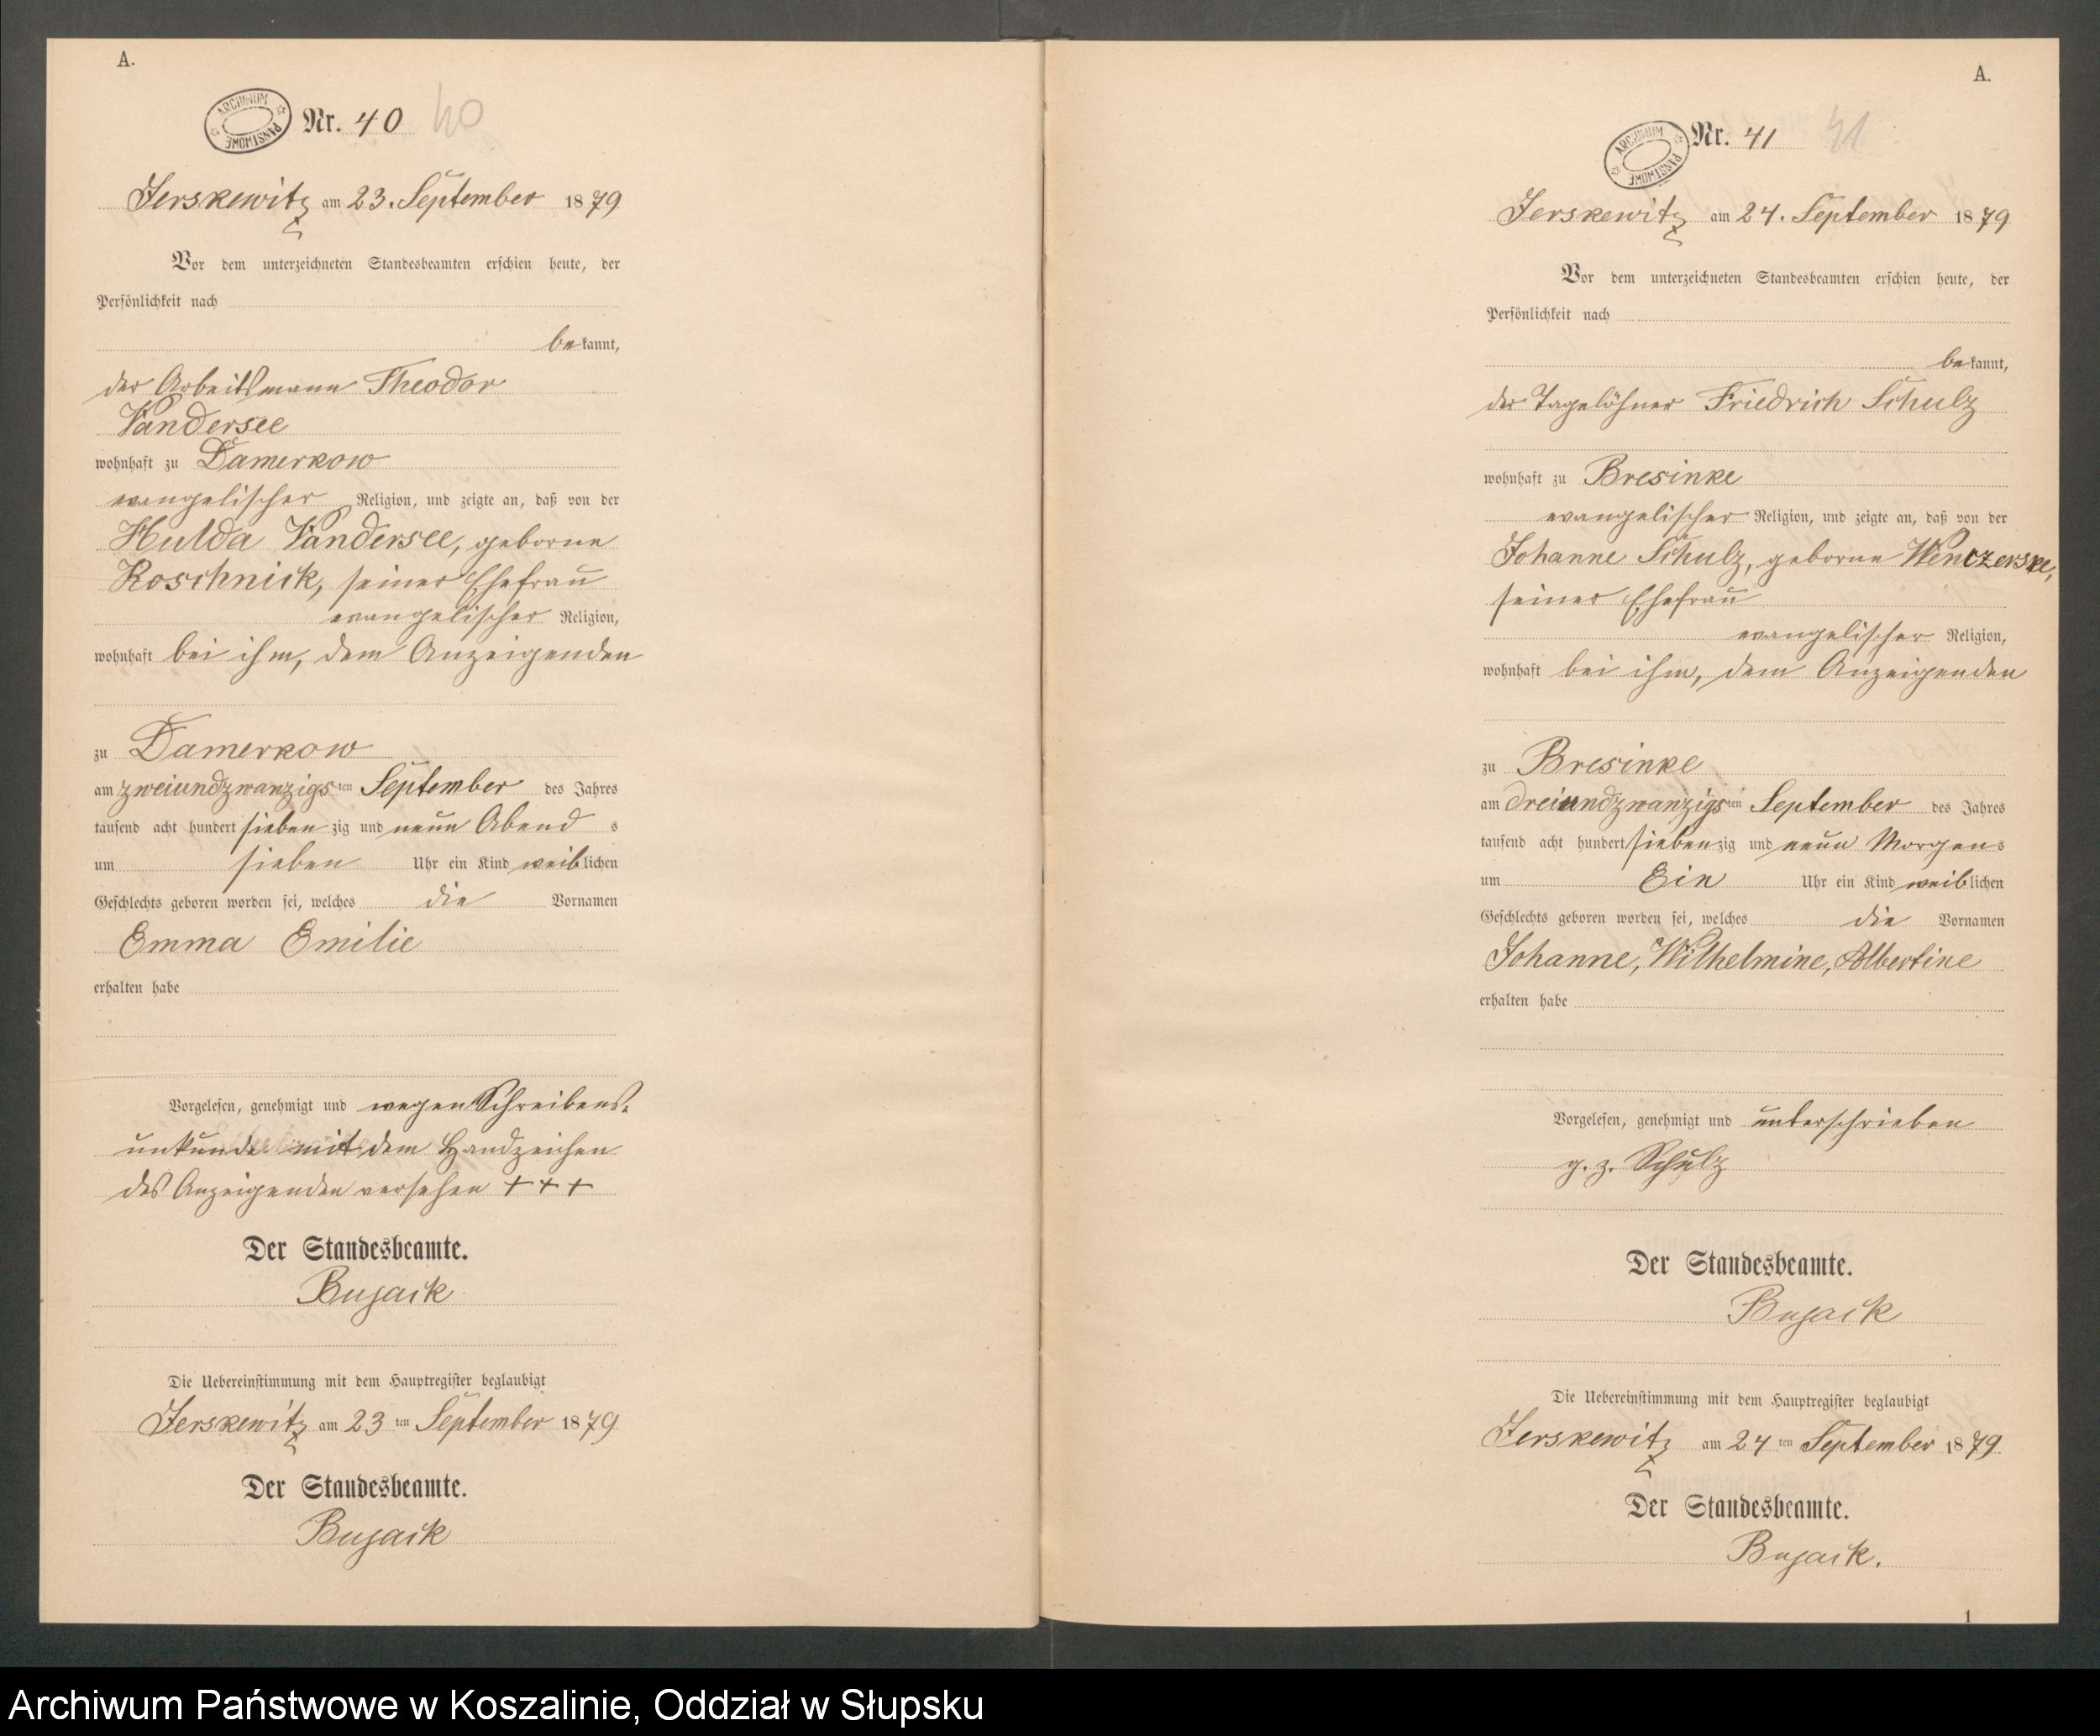 A.
ARCHIWUM PAŃSTWOWE
Nr. 40 40
Jerskewitz am 23. September 1879
Vor dem unterzeichneten Standesbeamten erschien heute, der
Persönlichkeit nach
bekannt,
der Arbeitsmann Theodor
Vandersee
wohnhaft zu Damerkow
evangelischer Religion, und zeigte an, daß von der
Hulda Vandersee, geborne
Koschnick, seiner Ehefrau
evangelischer Religion,
wohnhaft bei ihm, dem Anzeigenden
zu Damerkow
am zweiundzwanzigsten September des Jahres
tausend acht hundert siebenzig und neun Abends
um sieben Uhr ein Kind weiblichen
Geschlechts geboren worden sei, welches die Vornamen
Emma Emilie
erhalten habe
Vorgelesen, genehmigt und wegen Schreibens-
unkunde mit dem Handzeichen
des Anzeigenden versehen +++
Der Standesbeamte.
Bujack
Die Uebereinstimmung mit dem Hauptregister beglaubigt
Jerskewitz am 23ten September 1879
Der Standesbeamte.
Bujack
A.
ARCHIWUM PAŃSTWOWE
Nr. 41 41
Jerskewitz am 24. September 1879
Vor dem unterzeichneten Standesbeamten erschien heute, der
Persönlichkeit nach
bekannt,
der Tagelöhner Friedrich Schulz
wohnhaft zu Bresinke
evangelischer Religion, und zeigte an, daß von der
Johanne Schulz, geborne Wenczerske,
seiner Ehefrau
evangelischer Religion,
wohnhaft bei ihm, dem Anzeigenden
zu Bresinke
am dreiundzwanzigsten September des Jahres
tausend acht hundert siebenzig und neun Morgens
um Ein Uhr ein Kind weiblichen
Geschlechts geboren worden sei, welches die Vornamen
Johanne, Wilhelmine, Albertine
erhalten habe
Vorgelesen, genehmigt und unterschrieben
g. z. Schulz
Der Standesbeamte.
Bujack
Die Uebereinstimmung mit dem Hauptregister beglaubigt
Jerskewitz am 24ten September 1879
Der Standesbeamte.
Bujack.
1
Archiwum Państwowe w Koszalinie, Oddział w Słupsku